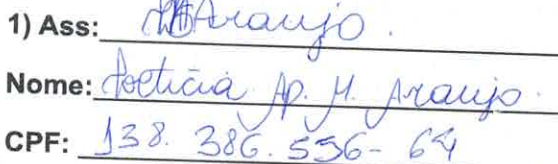 1) Ass: Araujo.
Nome: Letícia Ap. M. Araujo.
CPF: 138.386.556-64